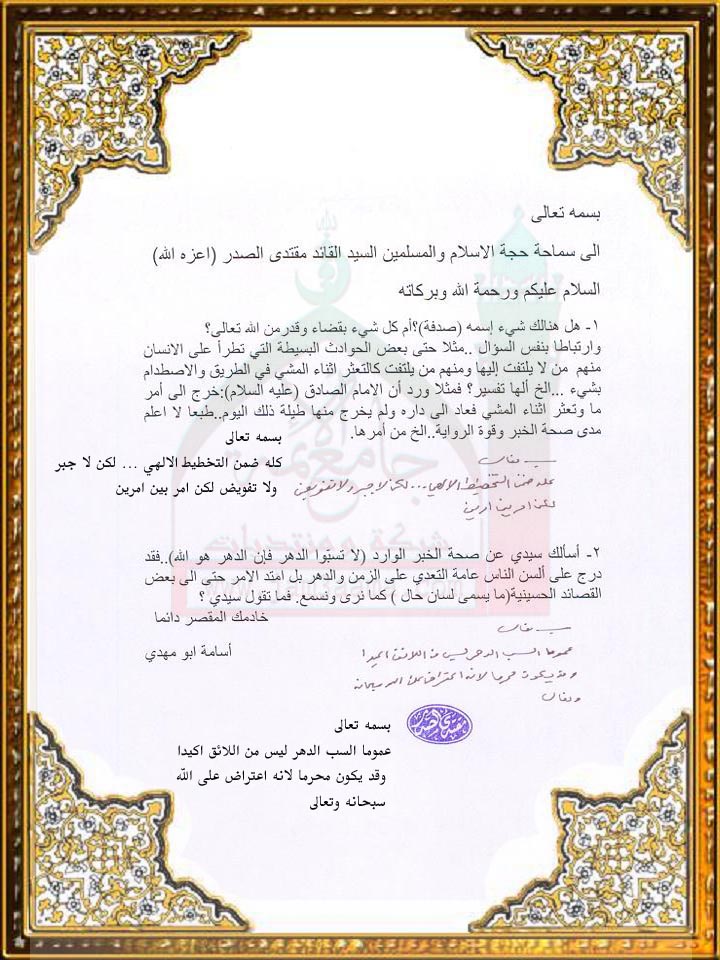 بسمه تعالى
الى سماحة حجة الاسلام والمسلمين السيد القائد مقتدى الصدر (اعزه الله)
السلام عليكم ورحمة الله وبركاته
١- هل هنالك شيء إسمه (صدفة)؟أم كل شيء بقضاء وقدرمن الله تعالى؟
وارتباطا بنفس السؤال ..مثلا حتى بعض الحوادث البسيطة التي تطرأ على الانسان
منهم من لا يلتفت إليها ومنهم من يلتفت كالتعثر اثناء المشي في الطريق والاصطدام
بشيء ...الخ ألها تفسير؟ فمثلا ورد أن الامام الصادق (عليه السلام):خرج الى أمر
ما وتعثر اثناء المشي فعاد الى داره ولم يخرج منها طيلة ذلك اليوم..طبعا لا اعلم
مدى صحة الخبر وقوة الرواية..الخ من أمرها.
بسمه تعالى
كله ضمن التخطيط الالهي ... لكن لا جبر
ولا تفويض لكن امر بين امرين
بسمه تعالى
كله ضمن التخطيط الالهي ... لكن لا جبر ولا تفويض
لكن امر بين امرين
٢- أسألك سيدي عن صحة الخبر الوارد (لا تسبّوا الدهر فإن الدهر هو الله)..فقد
درج على ألسن الناس عامة التعدي على الزمن والدهر بل امتد الامر حتى الى بعض
القصائد الحسينية(ما يسمى لسان حال ) كما نرى ونسمع. فما تقول سيدي ؟
خادمك المقصر دائما
أسامة ابو مهدي
بسمه تعالى
عموما السب الدهر ليس من اللائق اكيدا
وقد يكون محرما لانه اعتراض على الله سبحانه
وتعالى
بسمه تعالى
عموما السب الدهر ليس من اللائق اكيدا
وقد يكون محرما لانه اعتراض على الله
سبحانه وتعالى
مقتدى الصدر
جامع
شبكة ومنتديات